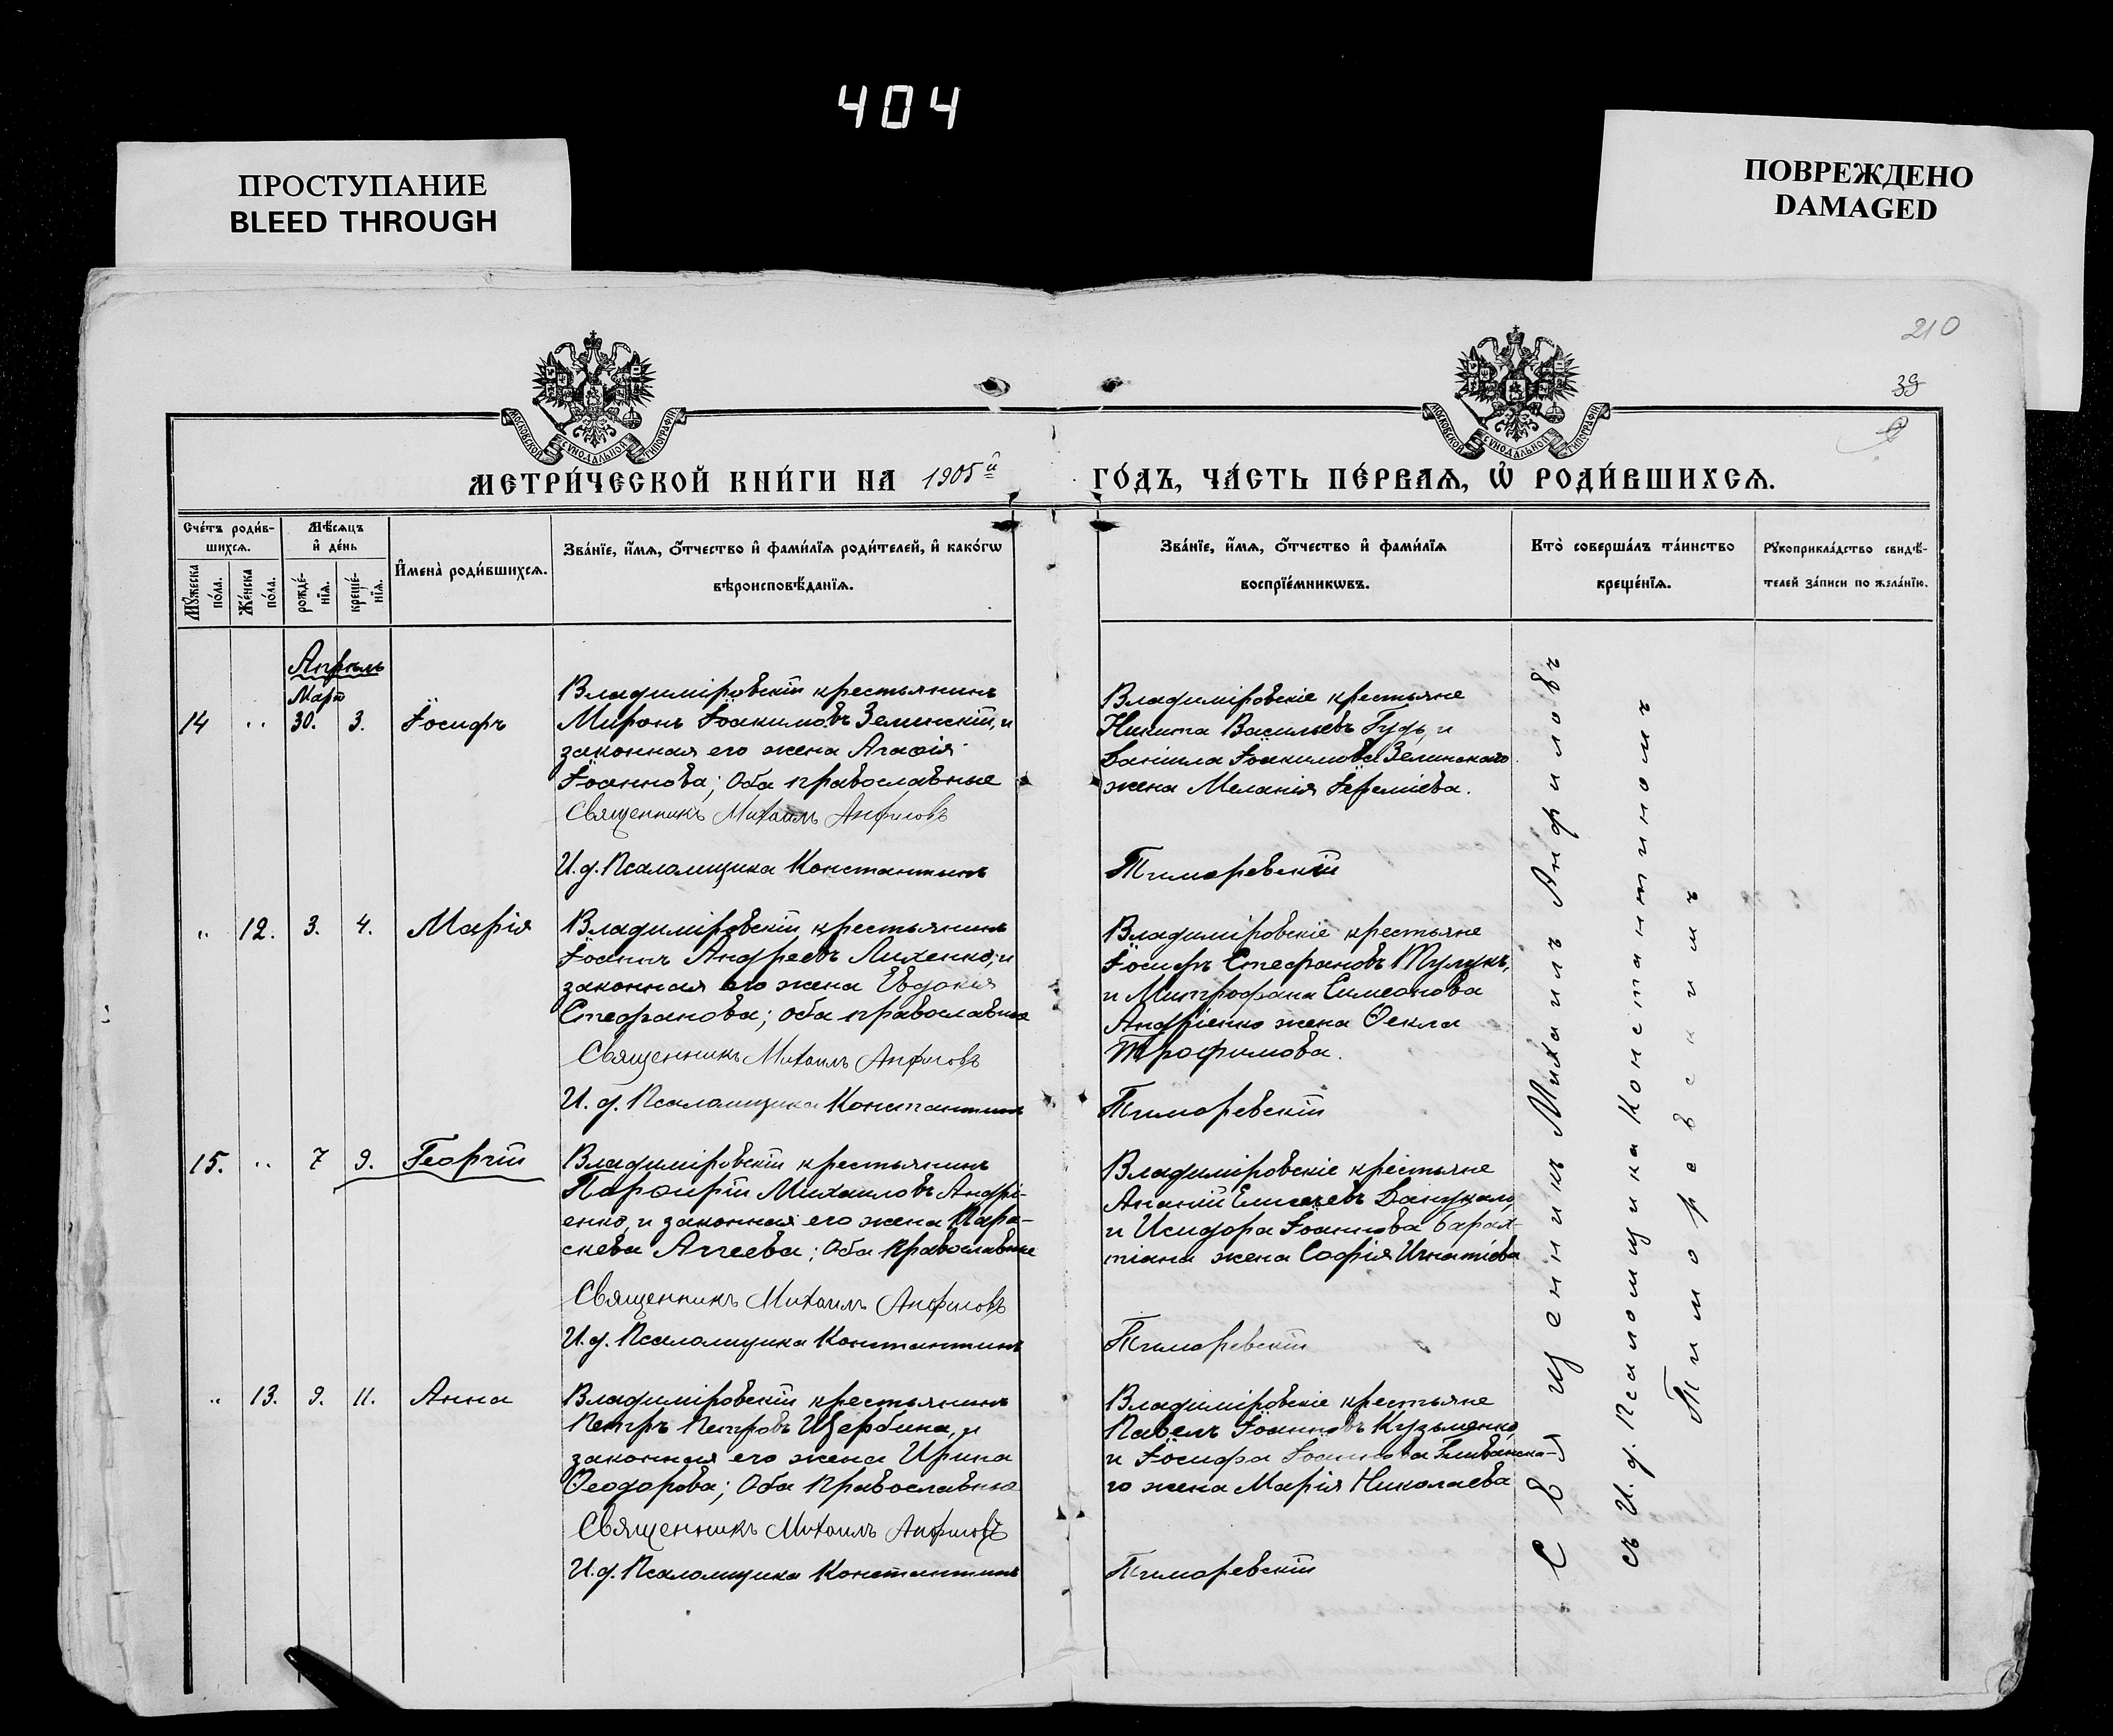 404
ПРОСТУПАНИЕ
BLEED THROUGH
ПОВРЕЖДЕНО
DAMAGED
210
39
МОСКОВСКОЙ СѴНОДАЛЬНОЙ ТИПОГРАФІИ
МОСКОВСКОЙ СѴНОДАЛЬНОЙ ТИПОГРАФІИ
МЕТРИ́ЧЕСКОЙ КНИ́ГИ НА 1905й ГО́ДЪ, ЧА́СТЬ ПЕ́РВАѦ, Ѡ҆ РОДИ́ВШИХСѦ.
Сче́тъ роди́в-
шихсѧ.
Мꙋ́жеска
по́ла.
Же́нска
по́ла.
Мѣ́сѧцъ
и҆ де́нь
рожде́-
нїѧ.
креще́-
нїѧ.
И҆мена̀ роди́вшихсѧ.
Зва́нїе, и҆́мѧ, ѻ҆́тчество и҆ фами́лїѧ роди́телей, и҆ како́гѡ
вѣроисповѣ́данїѧ.
Зва́нїе, и҆́мѧ, ѻ҆́тчество и҆ фами́лїѧ
воспрїе́мникѡвъ.
Кто̀ соверша́лъ та́инство
креще́нїѧ.
Рꙋкоприкла́дство свидѣ́-
телей за́писи по жела́нїю.
Апрѣль
Март
14 „ 30. 3. Іосифъ
Владиміровскій крестьянинъ
Миронъ Іоакимовъ Зелинскій, и
законная его жена Агаѳія
Іоаннова; Оба православные
Священникъ Михаилъ Анфиловъ
И. д. Псаломщика Константинъ
Владиміровскіе крестьяне
Никита Васильевъ Гудь, и
Даніила Іоакимова Зелинскаго
жена Меланія Іереміева.
Тиморевскій
„ 12. 3. 4. Марія
Владиміровскій крестьянинъ
Іоаннъ Андреевъ Лихенко, и
законная его жена Евдокія
Стефанова; оба православные
Священникъ Михаилъ Анфиловъ
И. д. Псаломщика Константинъ
Владиміровскіе крестьяне
Іосифъ Стефановъ
и Митрофана Симеонова
Андріенко жена Ѳекла
Трофимова.
Тиморевскій
15. „ 7 9. Георгій
Владиміровскій крестьянинъ
Парфирій Михаиловъ Андрі-
енко, и законная его жена Пара-
скева Аггеева; Оба православные
Священникъ Михаилъ Анфиловъ
И. д. Псаломщика Константинъ
Владиміровскіе крестьяне
Ананій Елисеевъ
и Исидора Іоаннова
жена Софія Игнатіева
Тиморевскій
„ 13. 9. 11. Анна
Владиміровскій крестьянинъ
Петръ Петровъ Щербина, и
законная его жена Ирина
Ѳеодорова; Оба православные
Священникъ Михаилъ Анфиловъ
И. д. Псаломщика Константинъ
Владиміровскіе крестьяне
Павелъ Іоанновъ Кузьменко,
и Іосифа Іоаннова
го жена Марія Николаева
Тиморевскій
Священникъ Михаилъ Анфиловъ
съ И. д. Псаломщика Константиномъ
Тиморевскимъ